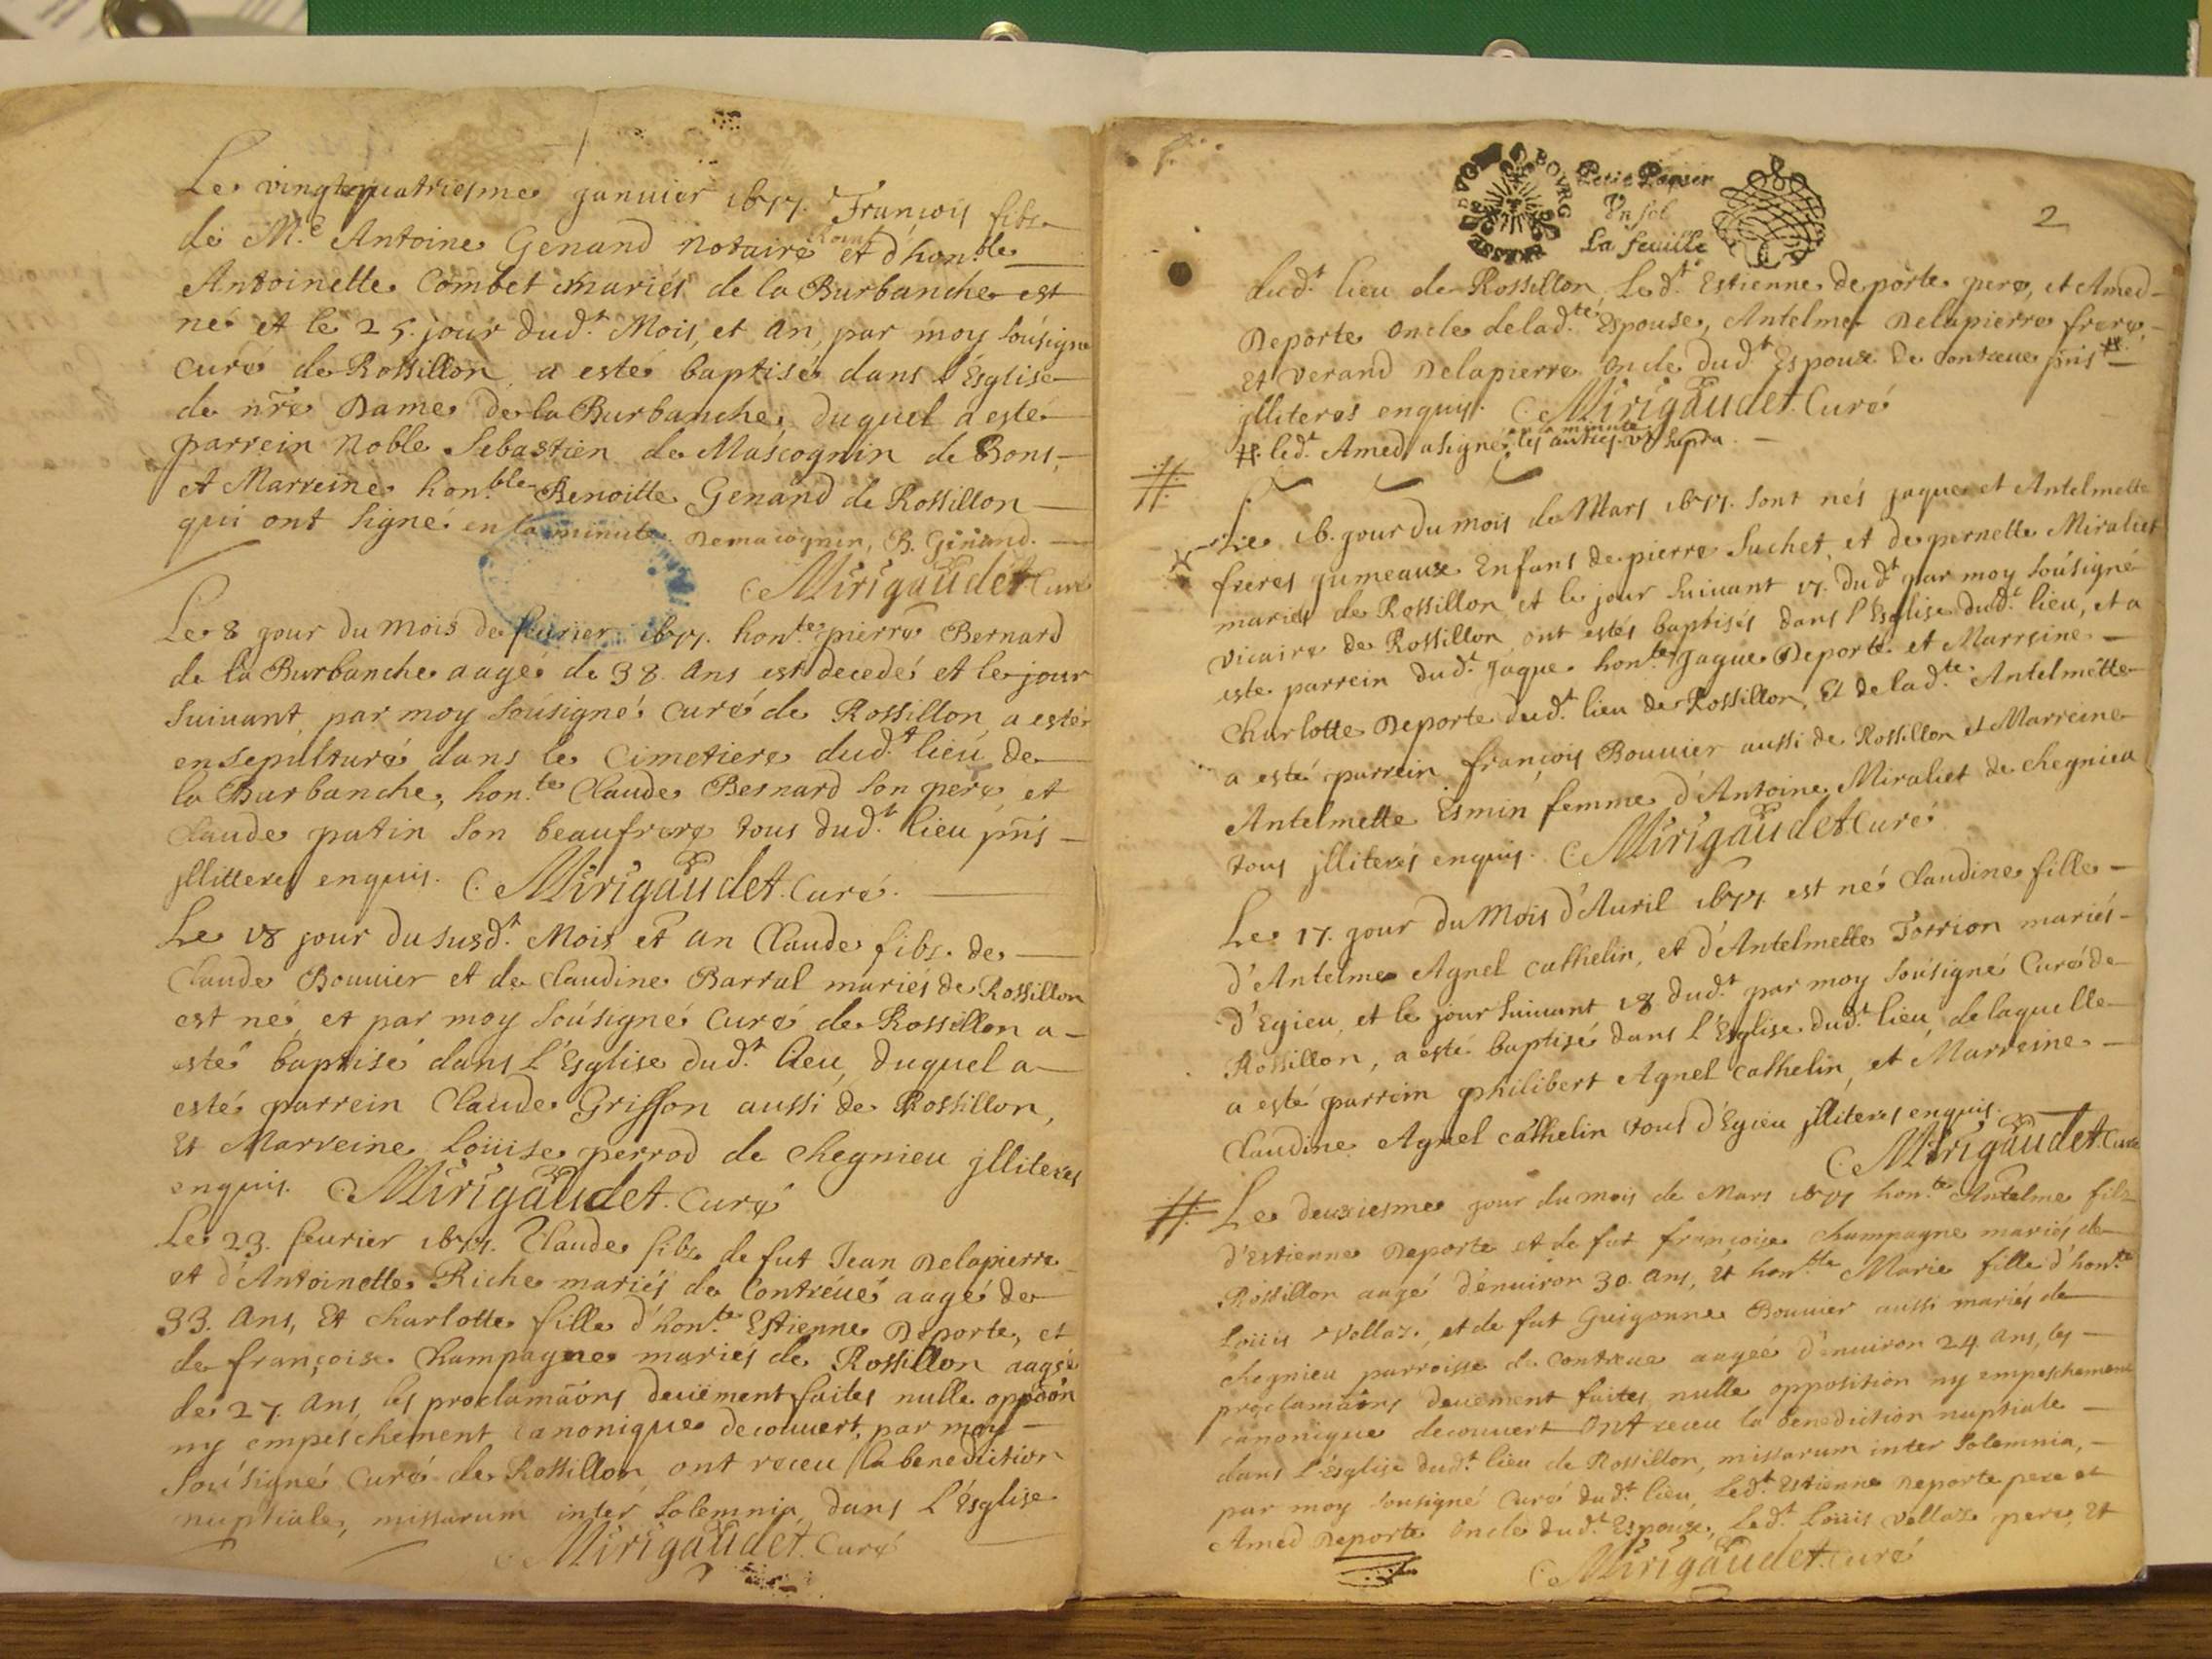 Le vingtquatriesme januier 1677. François fils
de M.e Antoine Genand Notaire Royal et d'hon.ble
Antoinette Combet mariés de la Burbanche est
né et le 25. jour dud.t Mois, et an, par moy soúsigné
curé de Rossillon, a esté baptisé dans l'Esglise
de nr̃e Dame de la Burbanche, duquel a esté
parrein Noble Sebastien de Mascognin de Bons,
et Marreine hon.ble Benoitte Genand de Rossillon
qui ont signé en la minute. Demacognin, B. Genand.
C. Mirigaudet Curé
Le 8 jour du mois de feurier 1677. hon.te pierre Bernard
de la Burbanche aagé de 38. ans est decedé et le jour
suiuant, par moy soúsigné curé de Rossillon, a esté
ensepulturé dans le Cimetiere dud.t lieu de
la Burbanche, hon.te Claude Bernard son pere, et
Claude patin son beaufrere tous dud.t lieu pñs
jlliteres enquis. C. Mirigaudet. Curé.
Le 18 jour du susd.t Mois et an Claude fils de
Claude Bouuier et de Claudine Barral mariés de Rossillon
est né, et par moy soúsigné curé de Rossillon a
esté baptisé dans l'Esglise dud.t lieu, duquel a
esté parrein Claude Griffon aussi de Rossillon,
Et Marreine Loüise perrod de Chegnieu jlliteres
enquis. C. Mirigaudet. Curé
Le 23. feurier 1677. Claude fils de fut Jean Delapierre
et d'Antoinette Riche mariés de Contreué aagé de
33. Ans, Et Charlotte fille d'hon.te Estienne Deporte, et
de françoise Champagne mariés de Rossillon aagée
de 27. Ans, les proclamãons deuëment faites nulle oppoõn
ny empeschement canonique decouuert, par moy
soúsigné Curé de Rossillon, ont receu la benediction
nuptiale, missarum inter solemnia, dans l'Esglise
C. Mirigaudet. Curé
BOURG
Petit Papier
Un sol
La feuille
2
dud.t lieu de Rossillon, Led.t Estienne Deporte pere, et Amed
Deporte Oncle de lad.te Espouse, Antelme Delapierre frere,
Et Verand Delapierre Oncle dud.t Espoux de Contreue pñs #
jlliteres enquis. C. Mirigaudet. Curé
#. led.t Amed a signé en la minute les autres ut supra.
Le 16. jour du mois de Mars 1677. sont nés jaque et Antelmette
freres jumeaux Enfans de pierre Suchet, et de pernette Miraliet
mariés de Rossillon et le jour suiuant 17. dud.t par moy soúsigné
vicaire de Rossillon ont estés baptisés dans l'Esglise dud.t lieu, et a
esté parrein dud.t Jaque hon.te Jaque Deporte et Marreine
Charlotte Deporte dud.t lieu de Rossillon, Et de lad.te Antelmette
a esté parrein françois Bouuier aussi de Rossillon et Marreine
Antelmette Esmin femme d'Antoine Miraliet de chegnieu
tous jlliterés enquis. C. Mirigaudet Curé
Le 17. jour du Mois d'Auril 1677. est né Claudine fille
d'Antelme Agnel cathelin, et d'Antelmette Torrion mariés
d'Egieu, et le jour suiuant 18 dud.t par moy soúsigné Curé de
Rossillon, a esté baptisé dans l'Esglise dud.t lieu, de laquelle
a esté parrein philibert Agnel Cathelin, et Marreine
Claudine Agnel cathelin tous d'Egieu jlliteres enquis.
C. Mirigaudet. Curé
# Le deuxiesme jour du mois de Mars 1677 hon.te Antelme fils
d'Estienne Deporte et de fut françoise Champagne mariés de
Rossillon aagé d'enuiron 30. ans, Et hon.te Marie fille d'hon.te
Loüis Vollaz, et de fut Guigonne Bouuier aussi mariés de
chegnieu parroisse de Contreue aageé d'enuiron 24. ans, les
proclamãons deuëment faites, nulle opposition ny empeschement
canonique decouuert ont receu la benediction nuptiale
dans l'Esglise dud.t lieu de Rossillon, missarum inter solemnia,
par moy soúsigné Curé dud.t lieu, Led.t Estienne Deporte pere et
Amed Deporte Oncle dud.t Espoux, Led.t Loüis Vollaz pere, Et
C. Mirigaudet. Curé